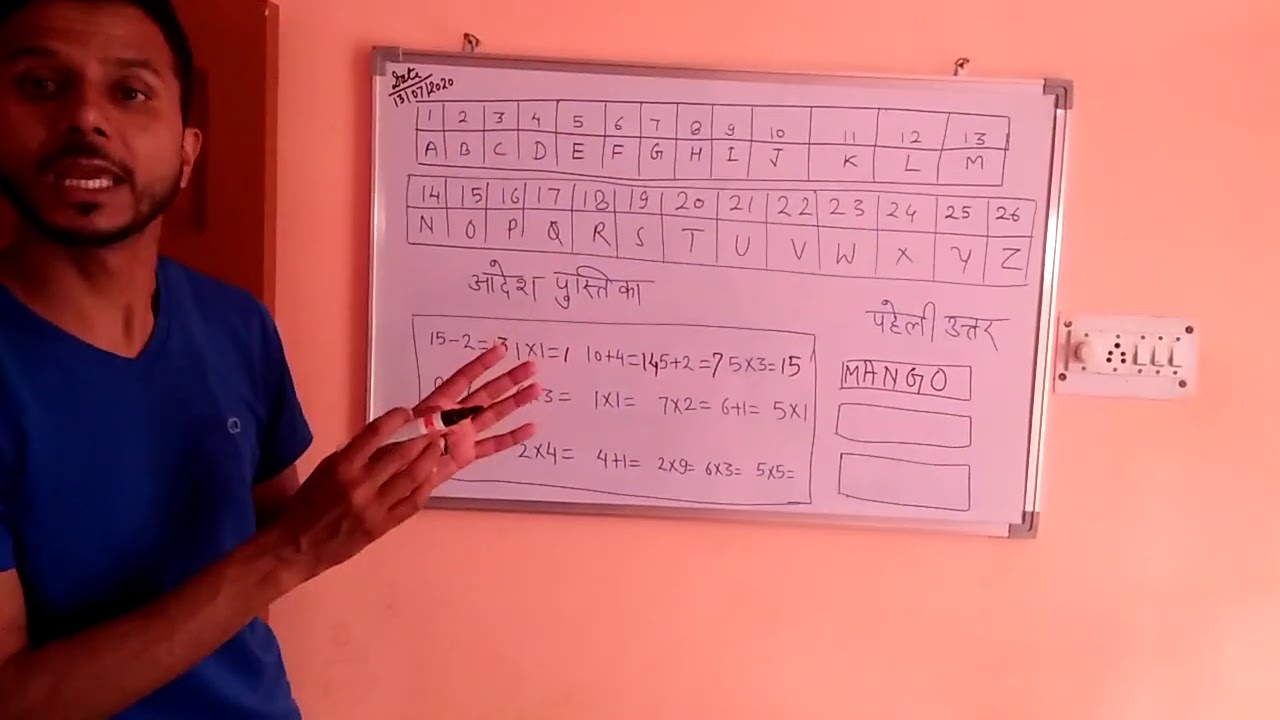 Date
13/07/2020
1 2 3 4 5 6 7 8 9 10 11 12 13
A B C D E F G H I J K L M
14 15 16 17 18 19 20 21 22 23 24 25 26
N O P Q R S T U V W X Y Z
आदेश पुस्तिका
पहेली उत्तर
15-2=13 1×1=1 10+4=14 5+2=7 5×3=15
×3= 1×1= 7×2= 6+1= 5×1
2×4= 4+1= 2×9= 6×3= 5×5=
MANGO